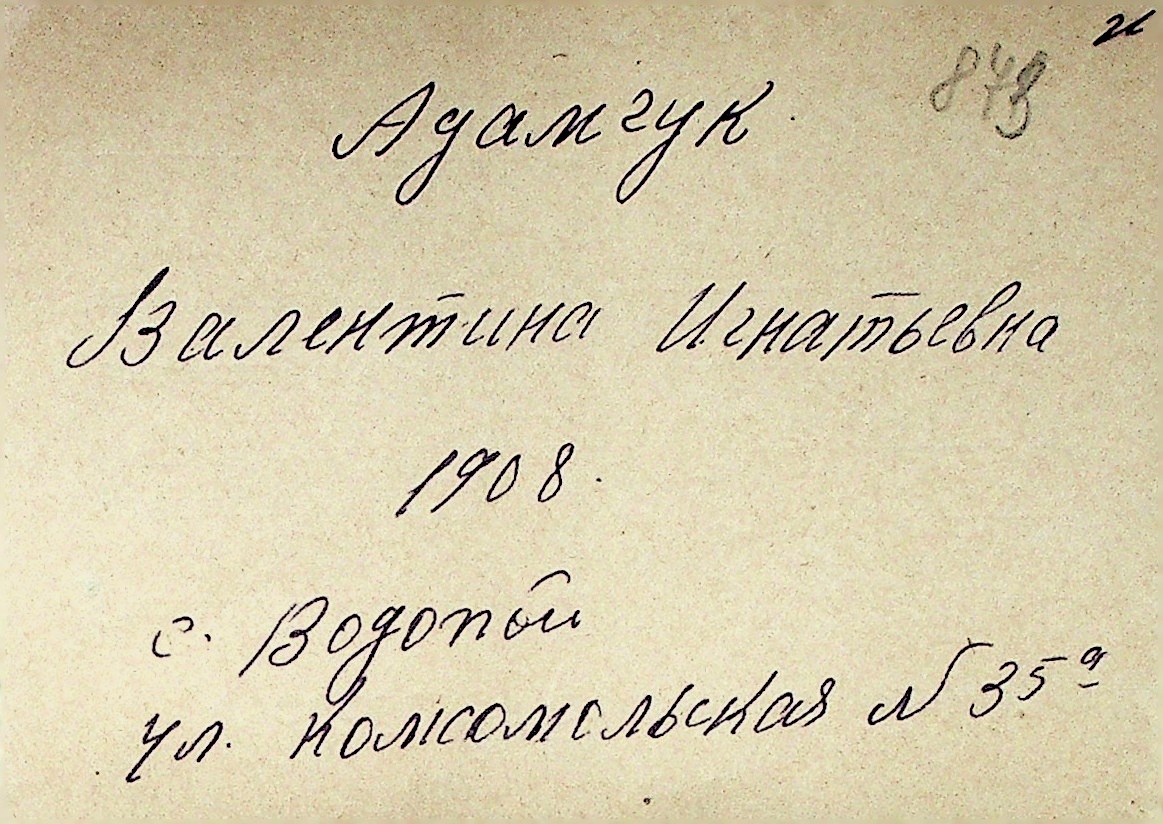 Адамчук
Валентина Игнатьевна
1908.
с. Водопой
ул. Комсомольская № 35а